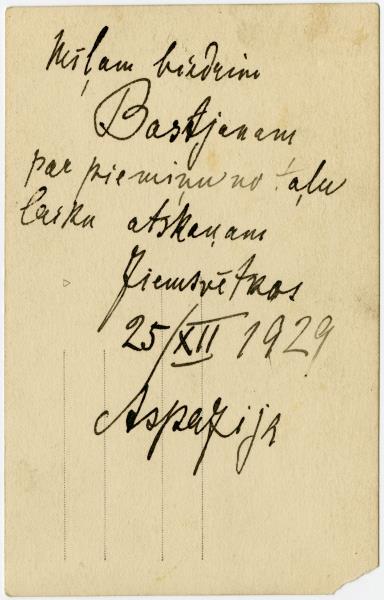 Mīļam biedrim
Bastjanam
par piemiņu no tāļu
laiku atskaņam
Ziemsvētkos
25/XII 1929
Aspazija